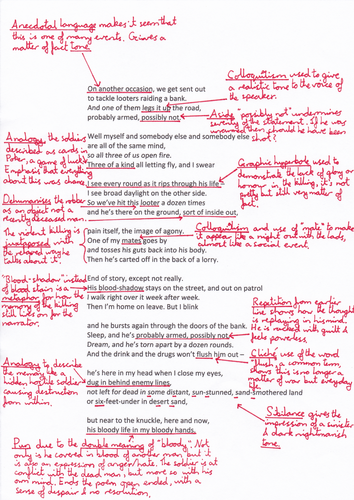 Anecdotal language makes it seem that
this is one of many events. Gives a
matter of fact tone
On another occasion, we get sent out
to tackle looters raiding a bank.
And one of them legs it up the road,
probably armed, possibly not.
Colloquialism used to give
a realistic tone to the voice of
the speaker.
Aside "possibly not" undermines
severity of the statement. If he was
unarmed then should he have been
shot?
Well myself and somebody else and somebody else
are all of the same mind,
so all three of us open fire.
Three of a kind all letting fly, and I swear
Analogy, the soldiers
described as cards in
Poker, a game of luck.
Emphasis that everything
about this was chance
Graphic hyperbole used to
demonstrate the lack of glory or
honour in the killing, it's not
pretty but still very matter of
fact.
I see every round as it rips through his life –
I see broad daylight on the other side.
So we've hit this looter a dozen times
and he's there on the ground, sort of inside out,
Dehumanises the robber
as an object not a
recently deceased man.
Colloquialism and use of "mate" to make
it appear like a night out with the lads,
almost like a social event.
pain itself, the image of agony.
One of my mates goes by
and tosses his guts back into his body.
Then he's carted off in the back of a lorry.
The violent killing is
juxtaposed with
the casual way he
talks about it.
End of story, except not really.
His blood-shadow stays on the street, and out on patrol
I walk right over it week after week.
Then I'm home on leave. But I blink
"Blood-shadow" instead
of blood stain is a
metaphor for how the
memory of the killing
still lies on for the
narrator.
Repetition from earlier
line shows how the thought
is replaying in his mind.
He is racked with guilt &
feels powerless.
and he bursts again through the doors of the bank.
Sleep, and he's probably armed, possibly not.
Dream, and he's torn apart by a dozen rounds.
And the drink and the drugs won't flush him out –
Cliché use of the word
"flush", a common term
shows this is no longer a
matter of war but everyday
life.
Analogy to describe
the memory like a
hidden hostile soldier
causing destruction
from within.
he's here in my head when I close my eyes,
dug in behind enemy lines,
not left for dead in some distant, sun-stunned, sand-smothered land
or six-feet-under in desert sand,
Sibilance gives the
impression of a sinister
& dark nightmarish
tone
but near to the knuckle, here and now,
his bloody life in my bloody hands.
Pun due to the double meaning of "bloody". Not
only is he covered in blood of another man, but it
is also an expression of anger/hate. The soldier is at
conflict with the dead man, but more so with his
own mind. Ends the poem open ended, with a
sense of despair & no resolution.